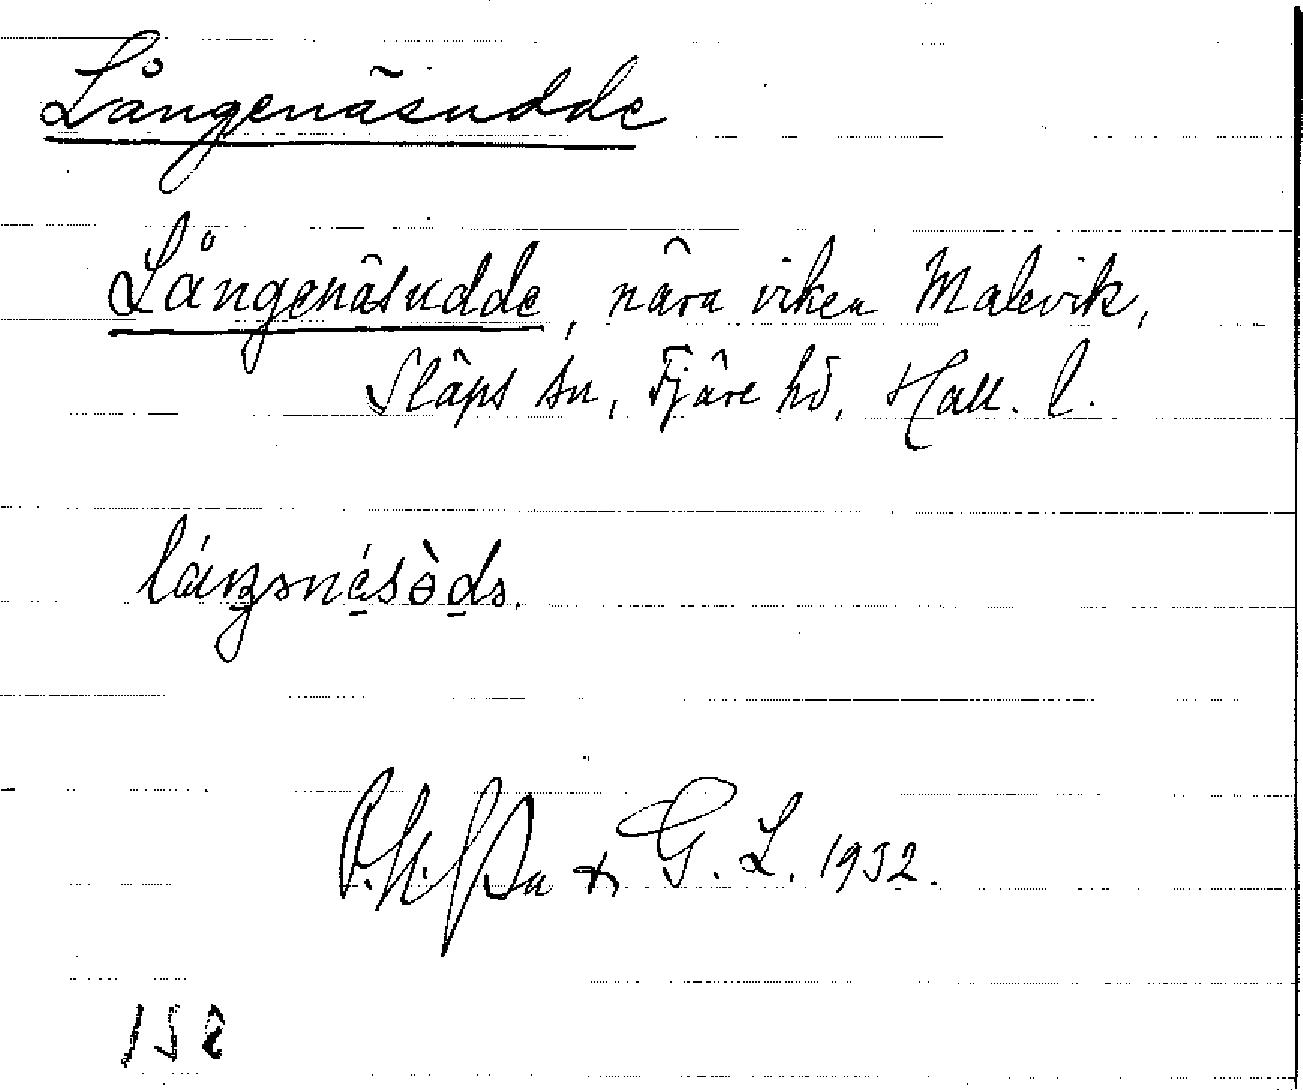 Långenäsudde
Långenäsudde, nära viken Malevik,
Släps sn, Fjäre hd, Hall. l.
& G. L. 1932.
152